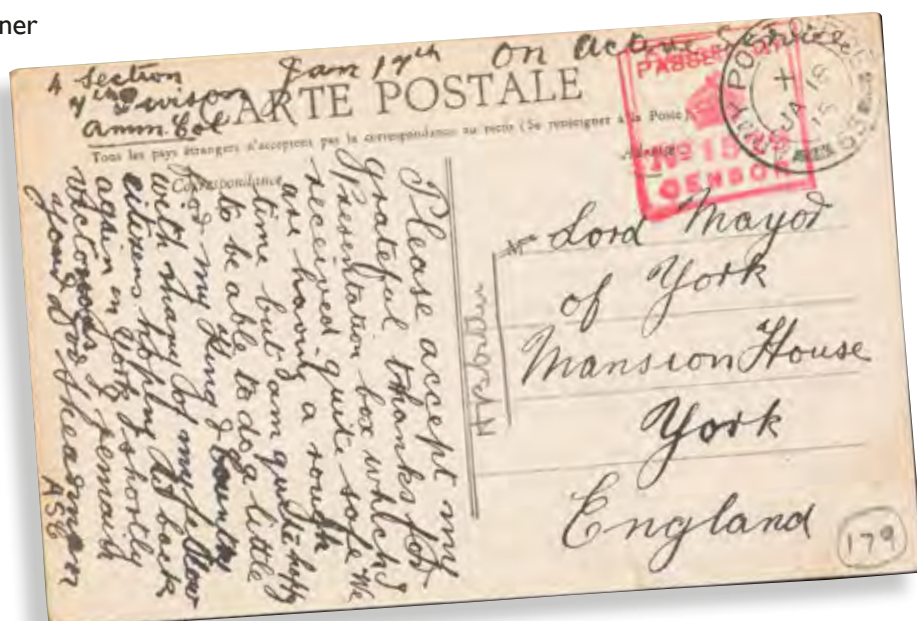 ner
A Section
7th Divison
Amm. Col
Jan 17th
On Active Service
CARTE POSTALE
Tous les pays étrangers n'acceptent pas la correspondance au recto (Se renseigner à la Poste)
Correspondance
Please accept my
grateful thanks for
Presentation box which I
received quite safe We
are having a rough
time but am quite happy
to be able to do a little
for my King & Country
with many of my fellow
citizens hoping to be back
again in York shortly
victorious I remain
yours
A S C
PASSED
No 15
CENSOR
ARMY POST OFFICE
JA 18
15
Lord Mayor
of York
Mansion House
York
England
179